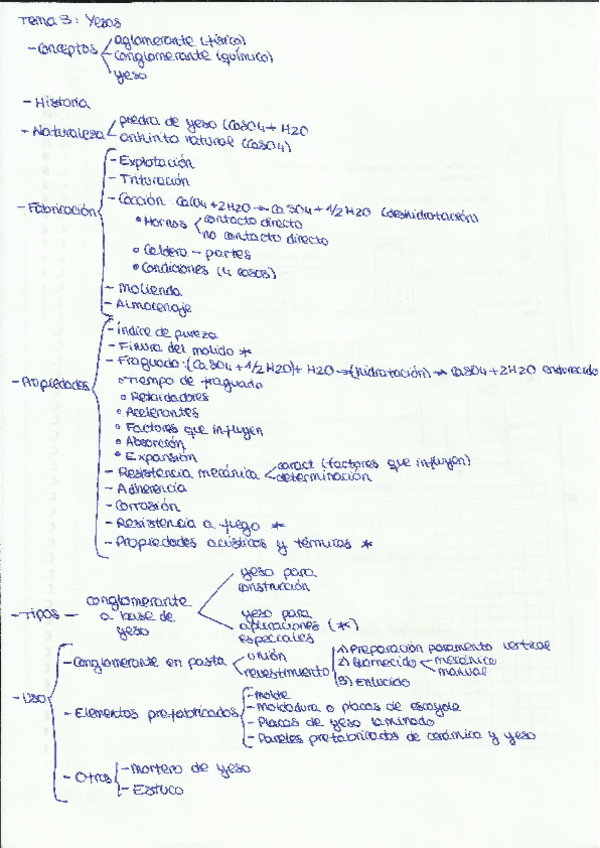 Tema 3: Yesos
- Conceptos
aglomerante (físico)
conglomerante (químico)
yeso
- Historia
- Naturaleza
piedra de yeso (CaSO4 + H2O
anhidrita natural (CaSO4)
- Fabricación
- Explotación
- Trituración
- Cocción: CaSO4 + 2H2O → CaSO4 + 1/2 H2O (deshidratación)
• Hornos
contacto directo
no contacto directo
• Caldera - partes
• Condiciones (4 cosas)
- Molienda
- Almacenaje
- Propiedades
- Índice de pureza
- Finura del molido *
- Fraguado: (CaSO4 + 1/2 H2O) + H2O → (hidratación) → CaSO4 + 2H2O endurecido
• Tiempo de fraguado
• Retardadores
• Acelerantes
• Factores que influyen
• Absorción
• Expansión
- Resistencia mecánica
caract (factores que influyen)
determinación
- Adherencia
- Corrosión
- Resistencia a fuego *
- Propiedades acústicas y térmicas *
- Tipos -
conglomerante
a base de
yeso
yeso para
construcción
yeso para
aplicaciones (*)
especiales
- Uso
- Conglomerante en pasta
unión
revestimiento
1) Preparación paramento vertical
2) Guarnecido
mecánico
manual
3) Enlucido
- Elementos prefabricados
- Molde
- Moldadura o placas de escayola
- Placas de yeso laminado
- Paneles prefabricados de cerámica y yeso
- Otros
- Mortero de yeso
- Estuco